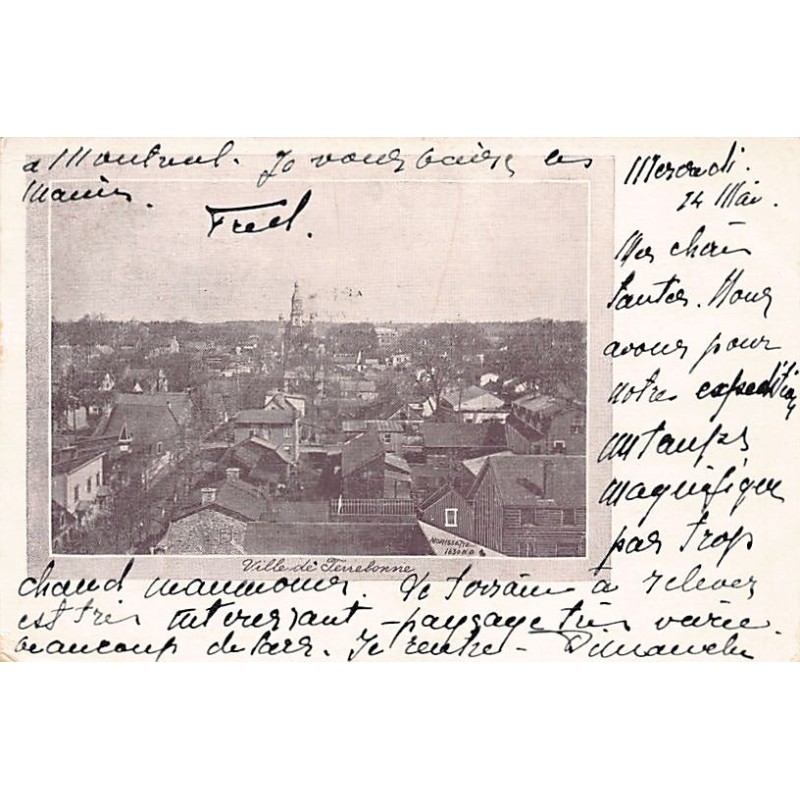 Mercredi.
24 Mai.
Mes chères
tantes. Nous
avons pour
notre expedition
un temps
magnifique
pas trop
chaud néanmoins. Le terrain à relever
est très interessant - paysage très varié.
beaucoup de lacs. Je rentre - Dimanche
à Montreal. Je vous baise les
mains.
Fred.
Ville de Terrebonne